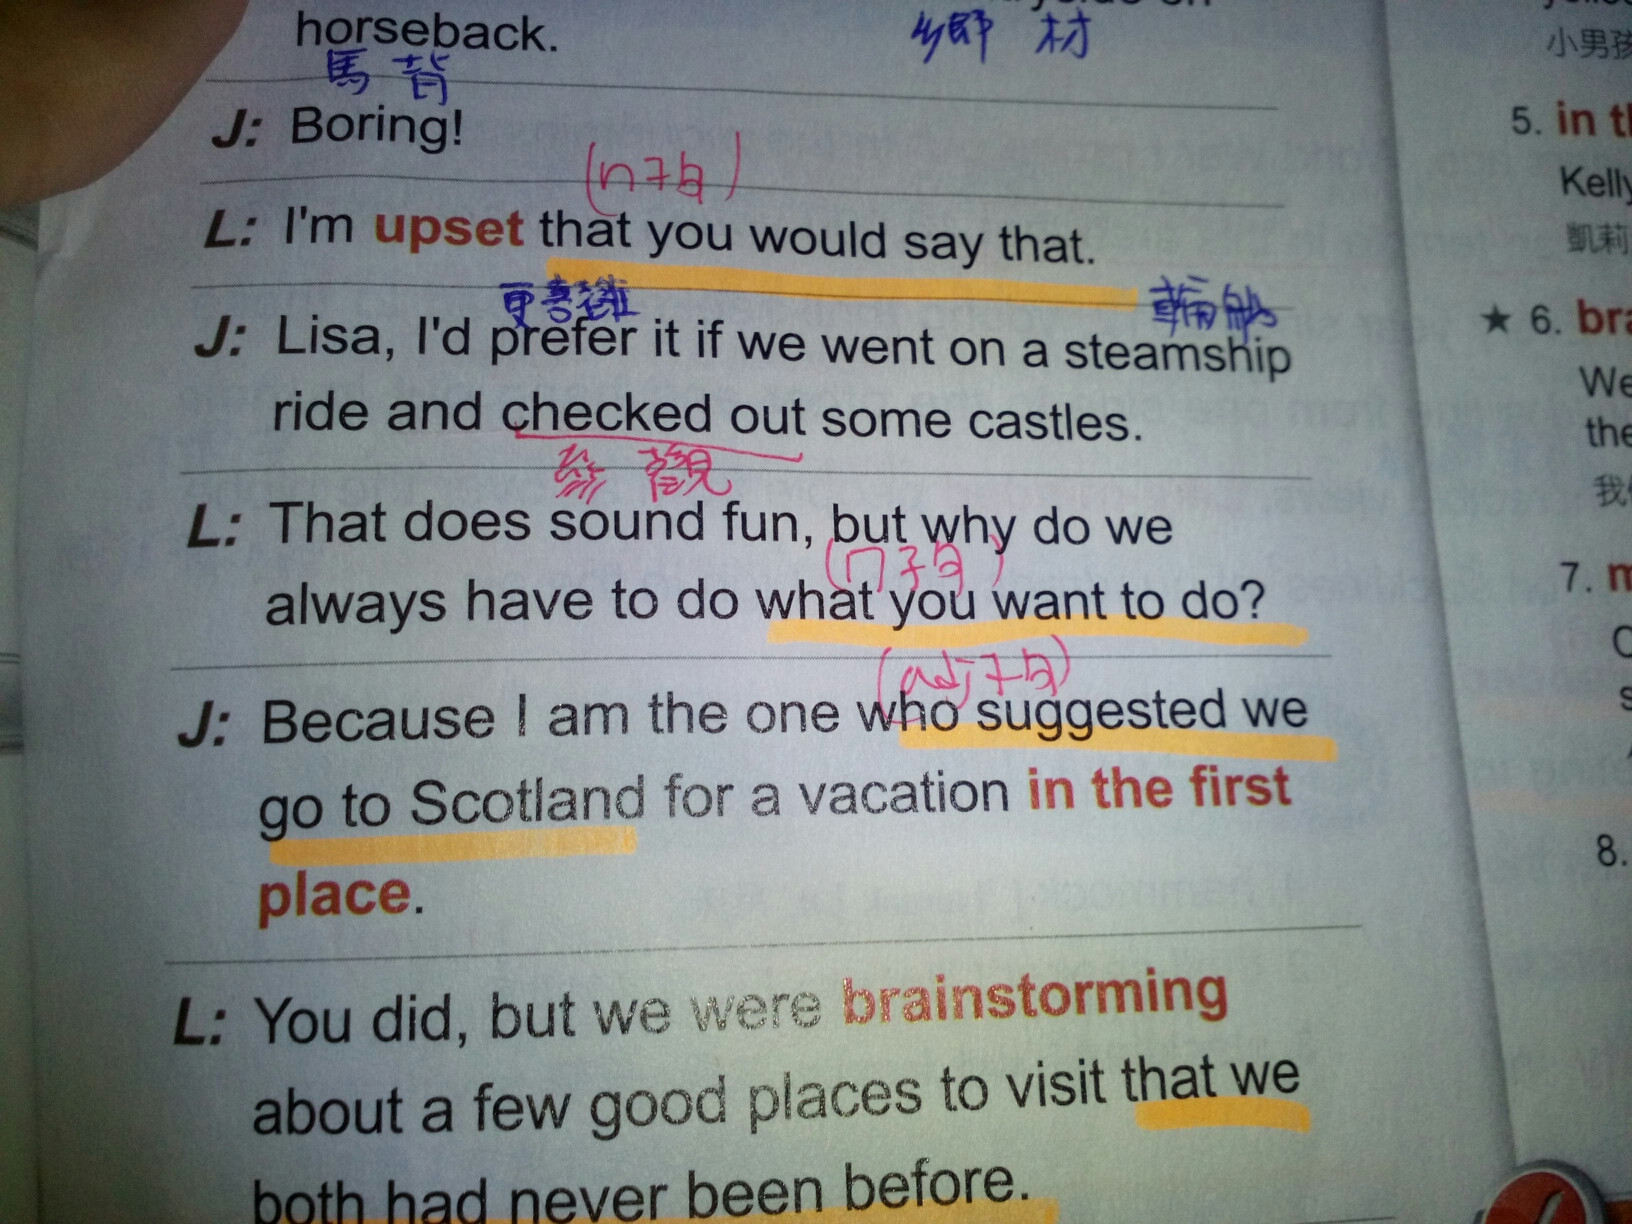 horseback.
馬 背
鄉 村
J: Boring!
(n子句)
L: I'm upset that you would say that.
更喜歡
J: Lisa, I'd prefer it if we went on a steamship
ride and checked out some castles.
參觀
L: That does sound fun, but why do we
(n子句)
always have to do what you want to do?
(adj子句)
J: Because I am the one who suggested we
go to Scotland for a vacation in the first
place.
L: You did, but we were brainstorming
about a few good places to visit that we
both had never been before.
小男孩
5. in
Kelly
凱莉
★ 6.
We
the
7.
8.